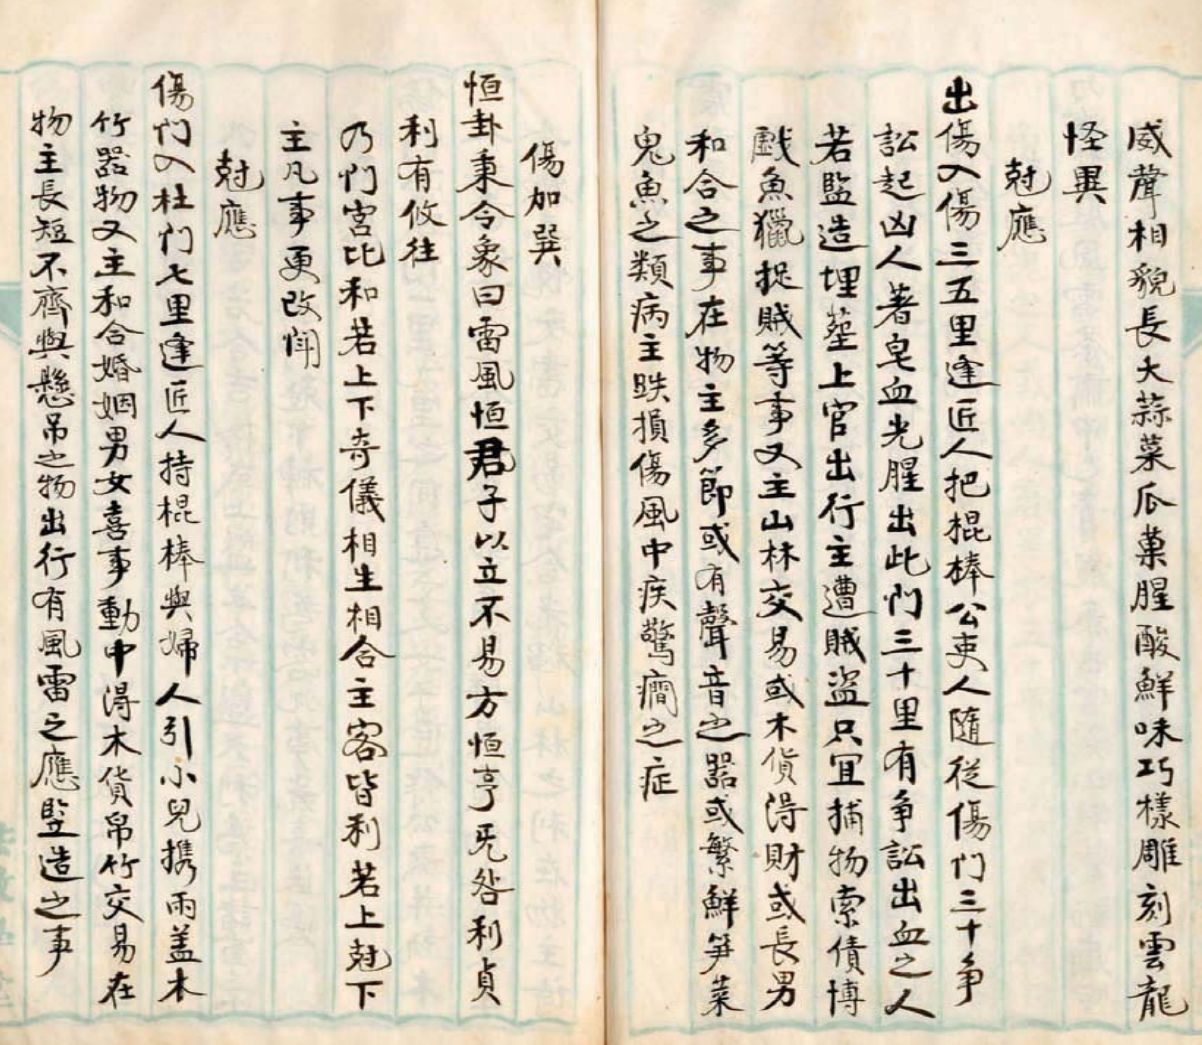 威聲相貌長大蒜菜瓜菓腥酸鮮味巧樣雕刻雲龍
怪異
尅應
出傷入傷三五里逢匠人把棍棒公吏人隨從傷门三十争
訟起凶人著皂血光腥出此门三十里有争訟出血之人
若監造埋塟上官出行主遭賊盗只宜捕物索債博
戱魚獵捉賊等事又主山林交易或木貨得財或長男
和合之事在物主多節或有聲音之器或繁鮮笋菜
鬼魚之類病主跌損傷風中疾驚癎之症
傷加巽
恒卦秉令象曰雷風恒君子以立不易方恒亨旡咎利貞
利有攸往
乃门宮比和若上下奇儀相生相合主客皆利若上尅下
主凡事更改
尅應
傷门入杜门七里逢匠人持棍棒與婦人引小兒携雨盖木
竹器物又主和合婚姻男女喜事動中得木貨帛竹交易在
物主長短不齊與懸吊之物出行有風雷之應竪造之事